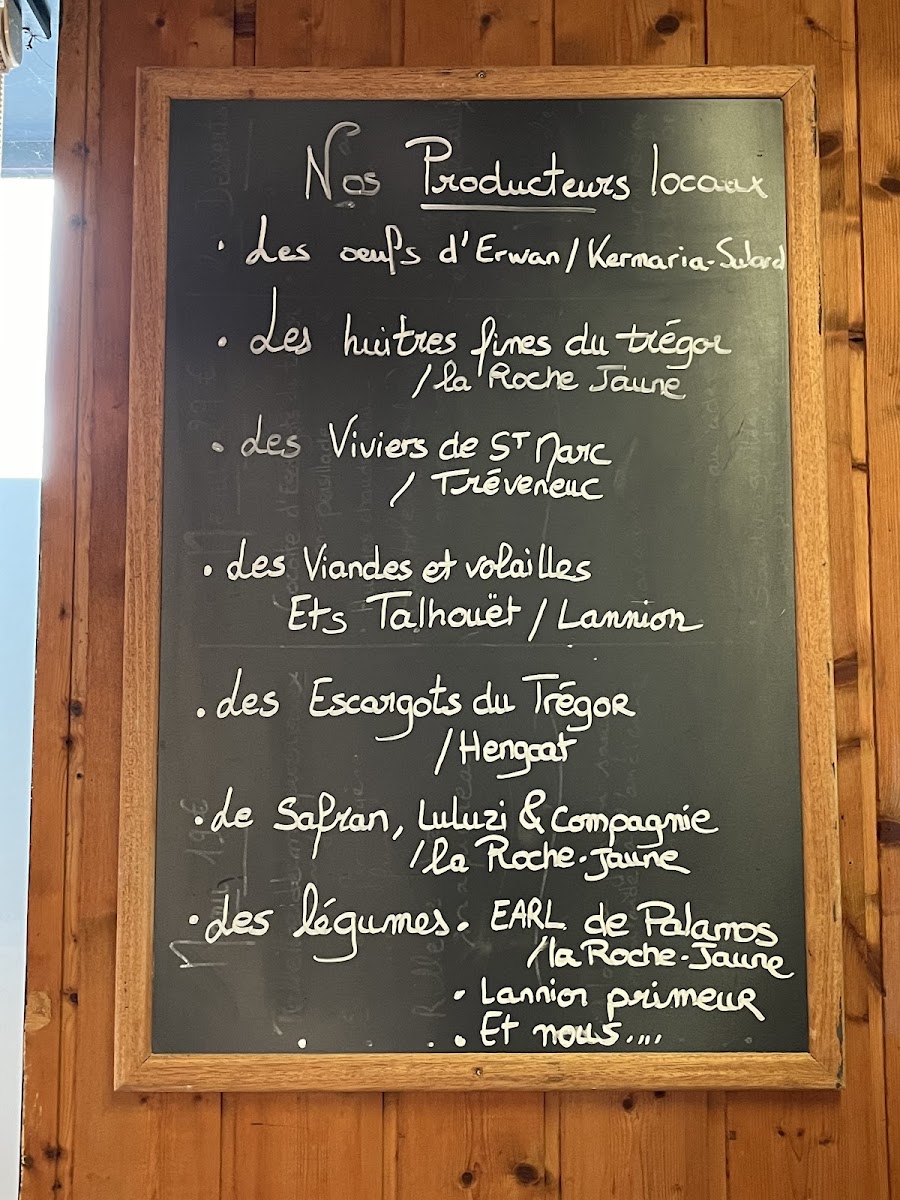 Nos Producteurs locaux
• Les œufs d'Erwan / Kermaria-Sulard
• Les huitres fines du trégor
/ la Roche Jaune
• des Viviers de ST Marc
/ Tréveneuc
• des Viandes et volailles
Ets Talhouët / Lannion
• des Escargots du Trégor
/ Hengoat
• de Safran, Luluzi & Compagnie
/ la Roche-Jaune
• des légumes • EARL de Palamos
/ la Roche-Jaune
• Lannion primeur
• Et nous....